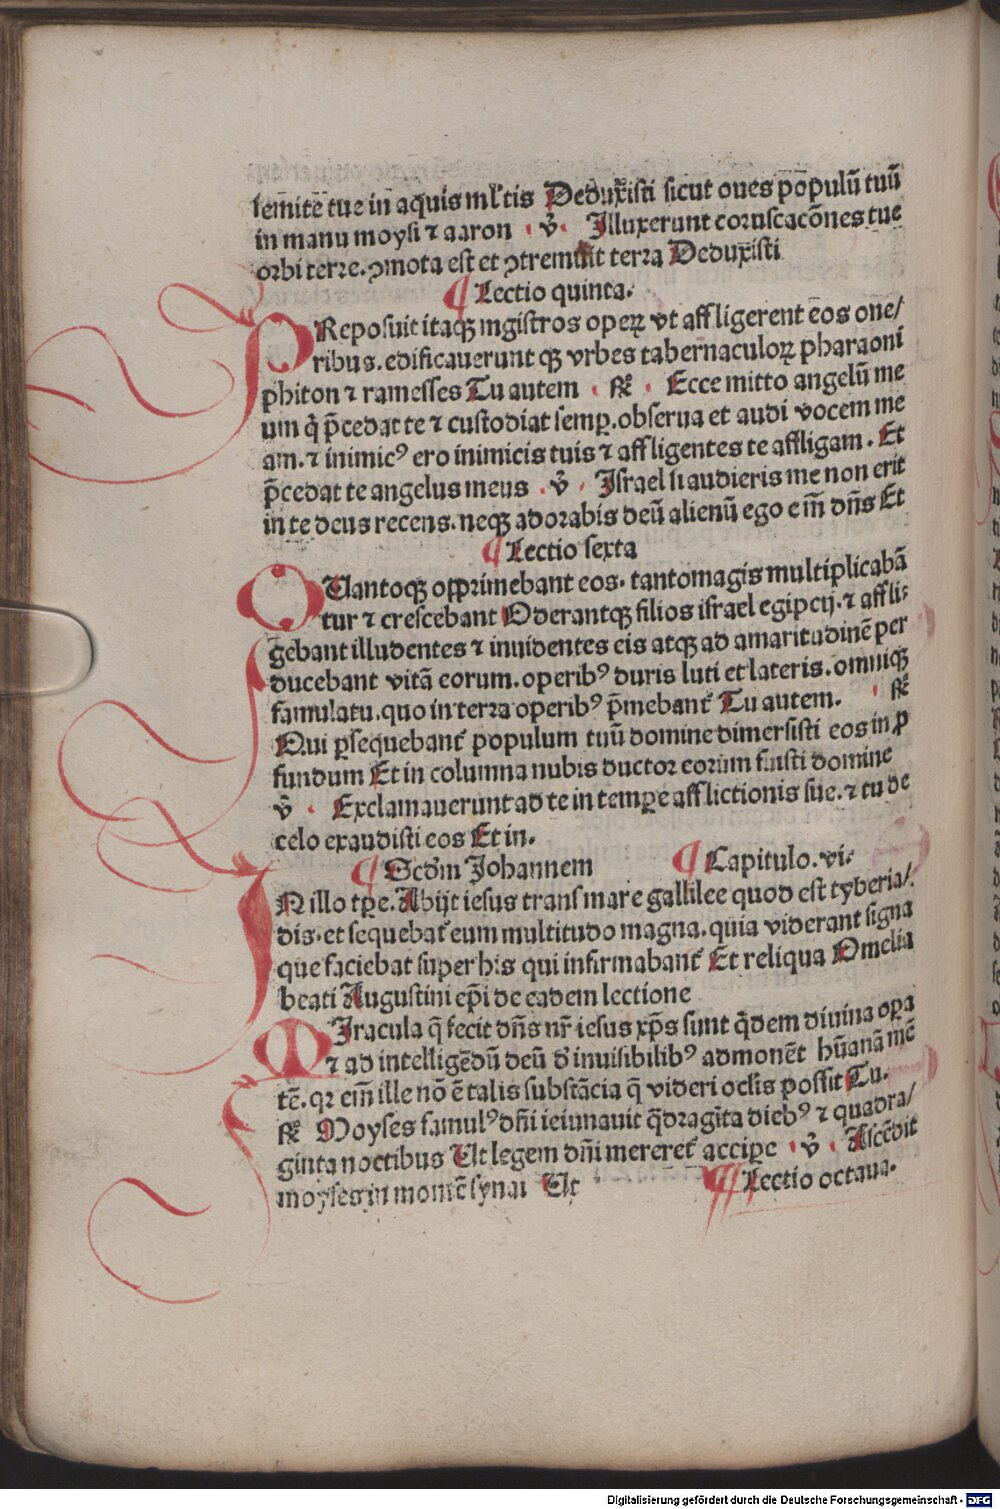 semitē tue in aquis ml'tis Deduxisti sicut oues populū tuū
in manu moysi ⁊ aaron . v̄. Illuxerunt coruscacōnes tue
orbi terre. ꝯmota est et ꝯtremuit terra Deduxisti
¶ Lectio quinta.
PReposuit itaqꝫ mgistros operꝝ vt affligerent eos one/
ribus. edificauerunt qꝫ vrbes tabernaculorꝝ pharaoni
phiton ⁊ ramesses Tu autem . ℟ . Ecce mitto angelū me
um q̇ p̄cedat te ⁊ custodiat semꝑ. obserua et audi vocem me
am. ⁊ inimicꝰ ero inimicis tuis ⁊ affligentes te affligam. Et
p̄cedat te angelus meus . v̄ . Israel si audieris me non erit
in te deus recens. neqꝫ adorabis deū alienū ego em̄ dn̄s Et
¶ Lectio sexta
QUantoqꝫ opprimebant eos. tantomagis multiplicabā
tur ⁊ crescebant Oderantqꝫ filios israel egipcij. ⁊ affli:
gebant illudentes ⁊ inuidentes eis atqꝫ ad amaritudinē per
ducebant vitā eorum. operibꝰ duris luti et lateris. omniqꝫ
famulatu. quo in terra operibꝰ p̄mebant᷑ Tu autem. . ℟
Qui ꝑsequebant᷑ populum tuū domine dimersisti eos in ꝓ
fundum Et in columna nubis ductor eorum fuisti domine
v̄ . Exclamauerunt ad te in tempore afflictionis sue. ⁊ tu de
celo exaudisti eos Et in.
¶ Scd̄m Johannem ¶ Capitulo. vi.
IN illo tp̄e. Abijt iesus trans mare gallilee quod est tyberia/.
dis. et sequebat᷑ eum multitudo magna. quia viderant signa
que faciebat super his qui infirmabant᷑ Et reliqua Omelia
beati Augustini ep̄i de eadem lectione
MIracula q̄ fecit dn̄s nr̄ iesus xp̄s sunt q̇dem diuina oꝑa
⁊ ad intelligēdū deū d' inuisibilibꝰ admonēt hūanā mē
tē. qꝛ em̄ ille nō ē talis substācia q̄ videri oclīs possit Tu.
℟ Moyses famulꝰ dn̄i ieiunauit q̄dragīta diebꝰ ⁊ quadra/
ginta noctibus Ut legem dn̄i mereret᷑ accipe . v̄ . Ascēdit
moyses in montē synai Ut ¶ Lectio octaua.
Digitalisierung gefördert durch die Deutsche Forschungsgemeinschaft - DFG